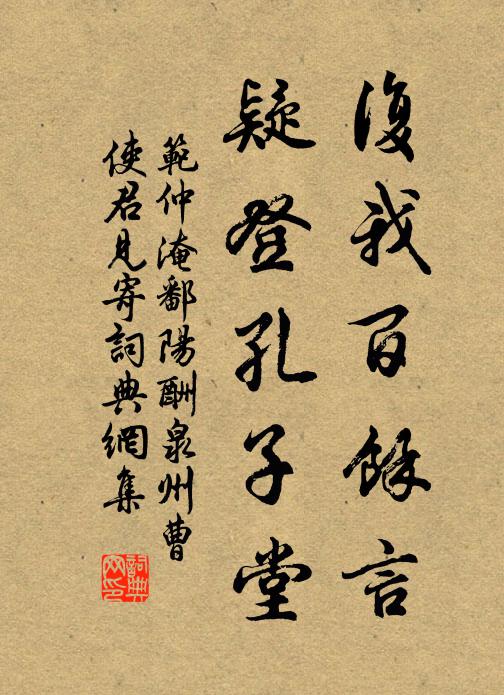 復我百餘言
疑登孔子堂
範仲淹鄱陽酬泉州曹
使君見寄詞典網集
詞典
网印